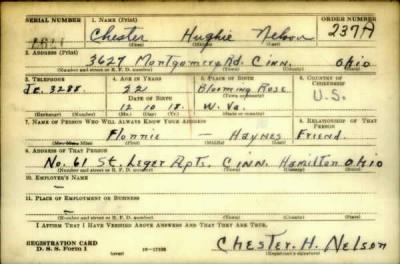 SERIAL NUMBER 1. NAME (Print) ORDER NUMBER
Chester Hughie Nelson 237A
(First) (Middle) (Last)
2. ADDRESS (Print)
3627 Montgomery Rd. Cinn. Ohio
(Number and street or R. F. D. number) (Town) (County) (State)
3. TELEPHONE 4. AGE IN YEARS 5. PLACE OF BIRTH 6. COUNTRY OF CITIZENSHIP
Je. 3288. 22 Blooming Rose U.S.
DATE OF BIRTH (Town or county)
12 10 18. W. Va.
(Exchange) (Number) (Mo.) (Day) (Yr.) (State or country)
7. NAME OF PERSON WHO WILL ALWAYS KNOW YOUR ADDRESS 8. RELATIONSHIP OF THAT PERSON
Flonnie — Haynes Friend.
(First) (Middle) (Last)
9. ADDRESS OF THAT PERSON
No. 61 St. Leger Apts. Cinn. Hamilton Ohio
(Number and street or R. F. D. number) (Town) (County) (State)
10. EMPLOYER'S NAME
11. PLACE OF EMPLOYMENT OR BUSINESS
(Number and street or R. F. D. number) (Town) (County) (State)
I AFFIRM THAT I HAVE VERIFIED ABOVE ANSWERS AND THAT THEY ARE TRUE.
REGISTRATION CARD
D. S. S. Form 1 (over) Chester. H. Nelson
(Registrant's signature)